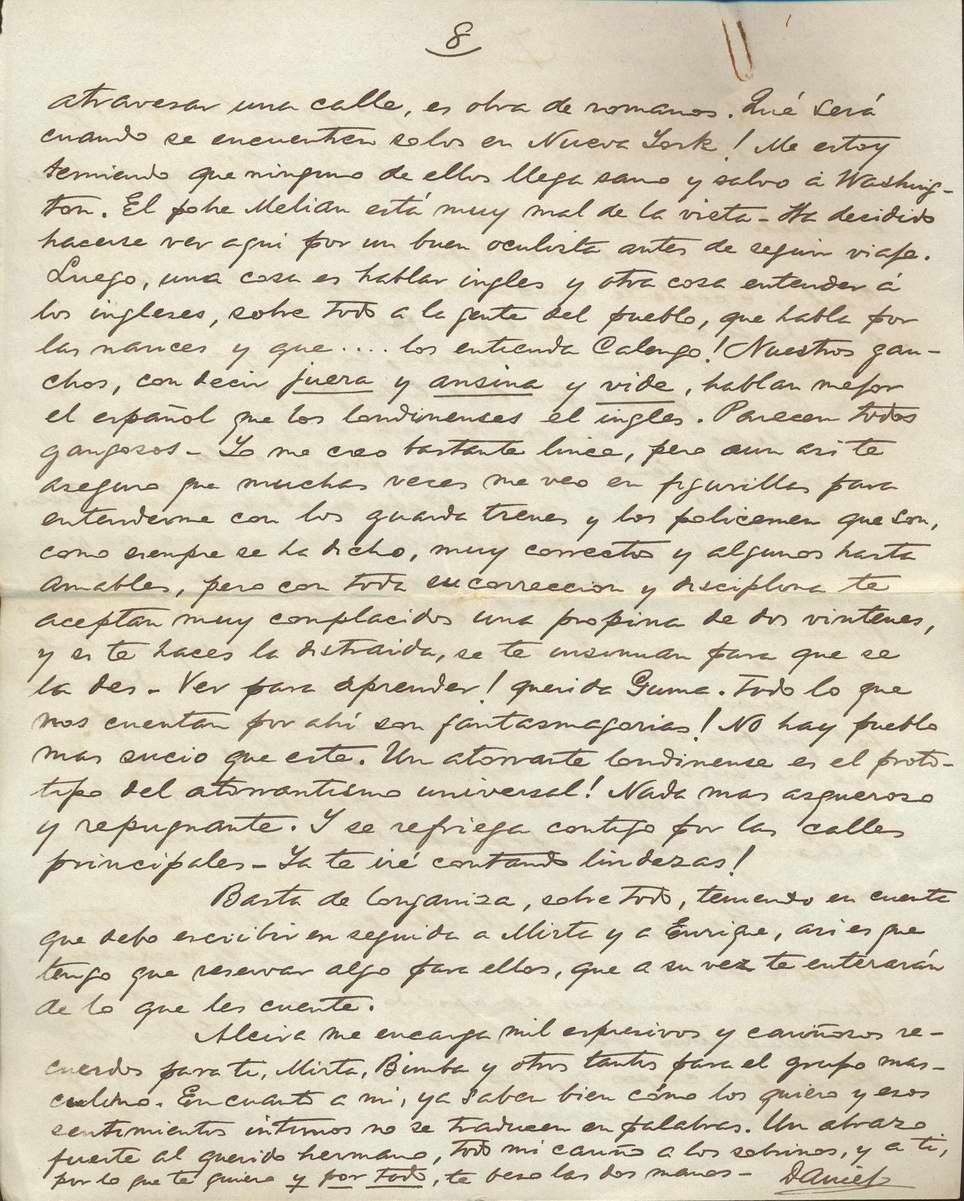 8
atravesar una calle, es obra de romanos. Qué será
cuando se encuentren solos en Nueva York! Me estoy
temiendo que ninguno de ellos llega sano y salvo á Washing-
ton. El pobre Melian está muy mal de la vista - Ha decidido
hacerse ver aqui por un buen oculista antes de seguir viaje.
Luego, una cosa es hablar ingles y otra cosa entender á
los ingleses, sobre todo a la gente del pueblo, que habla por
las narices y que .... los entienda Calengo! Nuestros gau-
chos, con decir juera y ansina y vide, hablan mejor
el español que los londinenses el ingles. Parecen todos
gangosos - Yo me creo bastante lince, pero aun asi te
aseguro que muchas veces me veo en figurillas para
entenderme con los guarda trenes y los policemen que son,
como siempre se ha dicho, muy correctos y algunos hasta
amables, pero con toda su correccion y disciplina te
aceptan muy complacidos una propina de dos vintenes,
y si te haces la distraida, se te insinuan para que se
la des - Ver para aprender! querida Guma. Todo lo que
nos cuentan por ahí son fantasmagorias! No hay pueblo
mas sucio que este. Un atorrante londinense es el proto-
tipo del atorrantismo universal! Nada mas asqueroso
y repugnante. Y se refriega contigo por las calles
principales - Ya te iré contando lindezas!
Basta de longaniza, sobre todo, teniendo en cuenta
que debo escribir en seguida a Mirta y a Enrique, asi es que
tengo que reservar algo para ellos, que a su vez te enterarán
de lo que les cuente.
Alcira me encarga mil espresivos y cariñosos re-
cuerdos para ti, Mirta, Bimba y otros tantos para el grupo mas-
culino. En cuanto a mi, ya saben bien cómo los quiero y esos
sentimientos intimos no se traducen en palabras. Un abrazo
fuerte al querido hermano, todo mi cariño a los sobrinos, y a ti,
por lo que te quiero y por todo, te beso las dos manos - Daniel